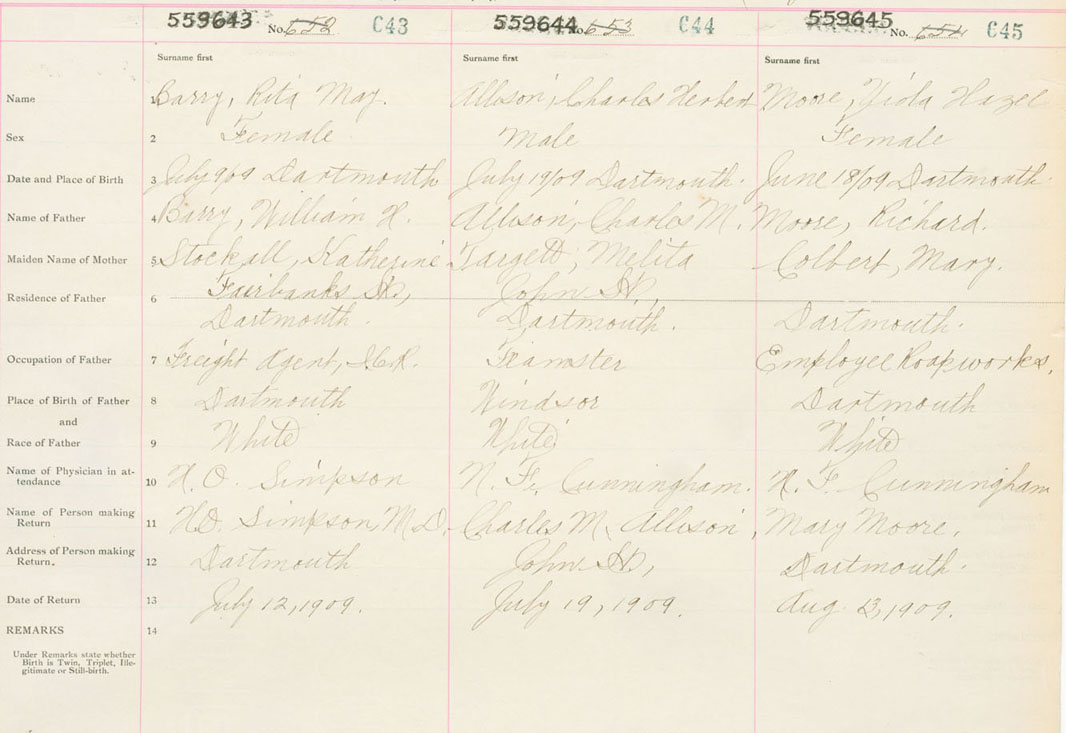 559643 No. 652 C43 559644 No. 653 C44 559645 No. 654 C45
Surname first Surname first Surname first
Name 1 Barry, Rita May. Allison, Charles Herbert Moore, Viola Hazel
Sex 2 Female Male Female
Date and Place of Birth 3 July 9/09 Dartmouth July 19/09 Dartmouth. June 18/09 Dartmouth.
Name of Father 4 Barry, William H. Allison, Charles M. Moore, Richard.
Maiden Name of Mother 5 Stockall, Katherine Targett, Melita Colbert, Mary.
Fairbanks St., John St.,
Residence of Father 6
Dartmouth. Dartmouth. Dartmouth.
Occupation of Father 7 Freight Agent, I.C.R. Teamster Employee Roapworks.
Place of Birth of Father 8 Dartmouth Windsor Dartmouth
and
Race of Father 9 White White White
Name of Physician in at-
tendance 10 H. O. Simpson N. F. Cunningham. N. F. Cunningham
Name of Person making
Return 11 H.O. Simpson, M.D. Charles M. Allison, Mary Moore.
Address of Person making
Return. 12 Dartmouth John St., Dartmouth.
Date of Return 13 July 12, 1909. July 19, 1909. Aug 1909.
REMARKS 14
Under Remarks state whether
Birth is Twin, Triplet, Ille-
gitimate or Still-birth.